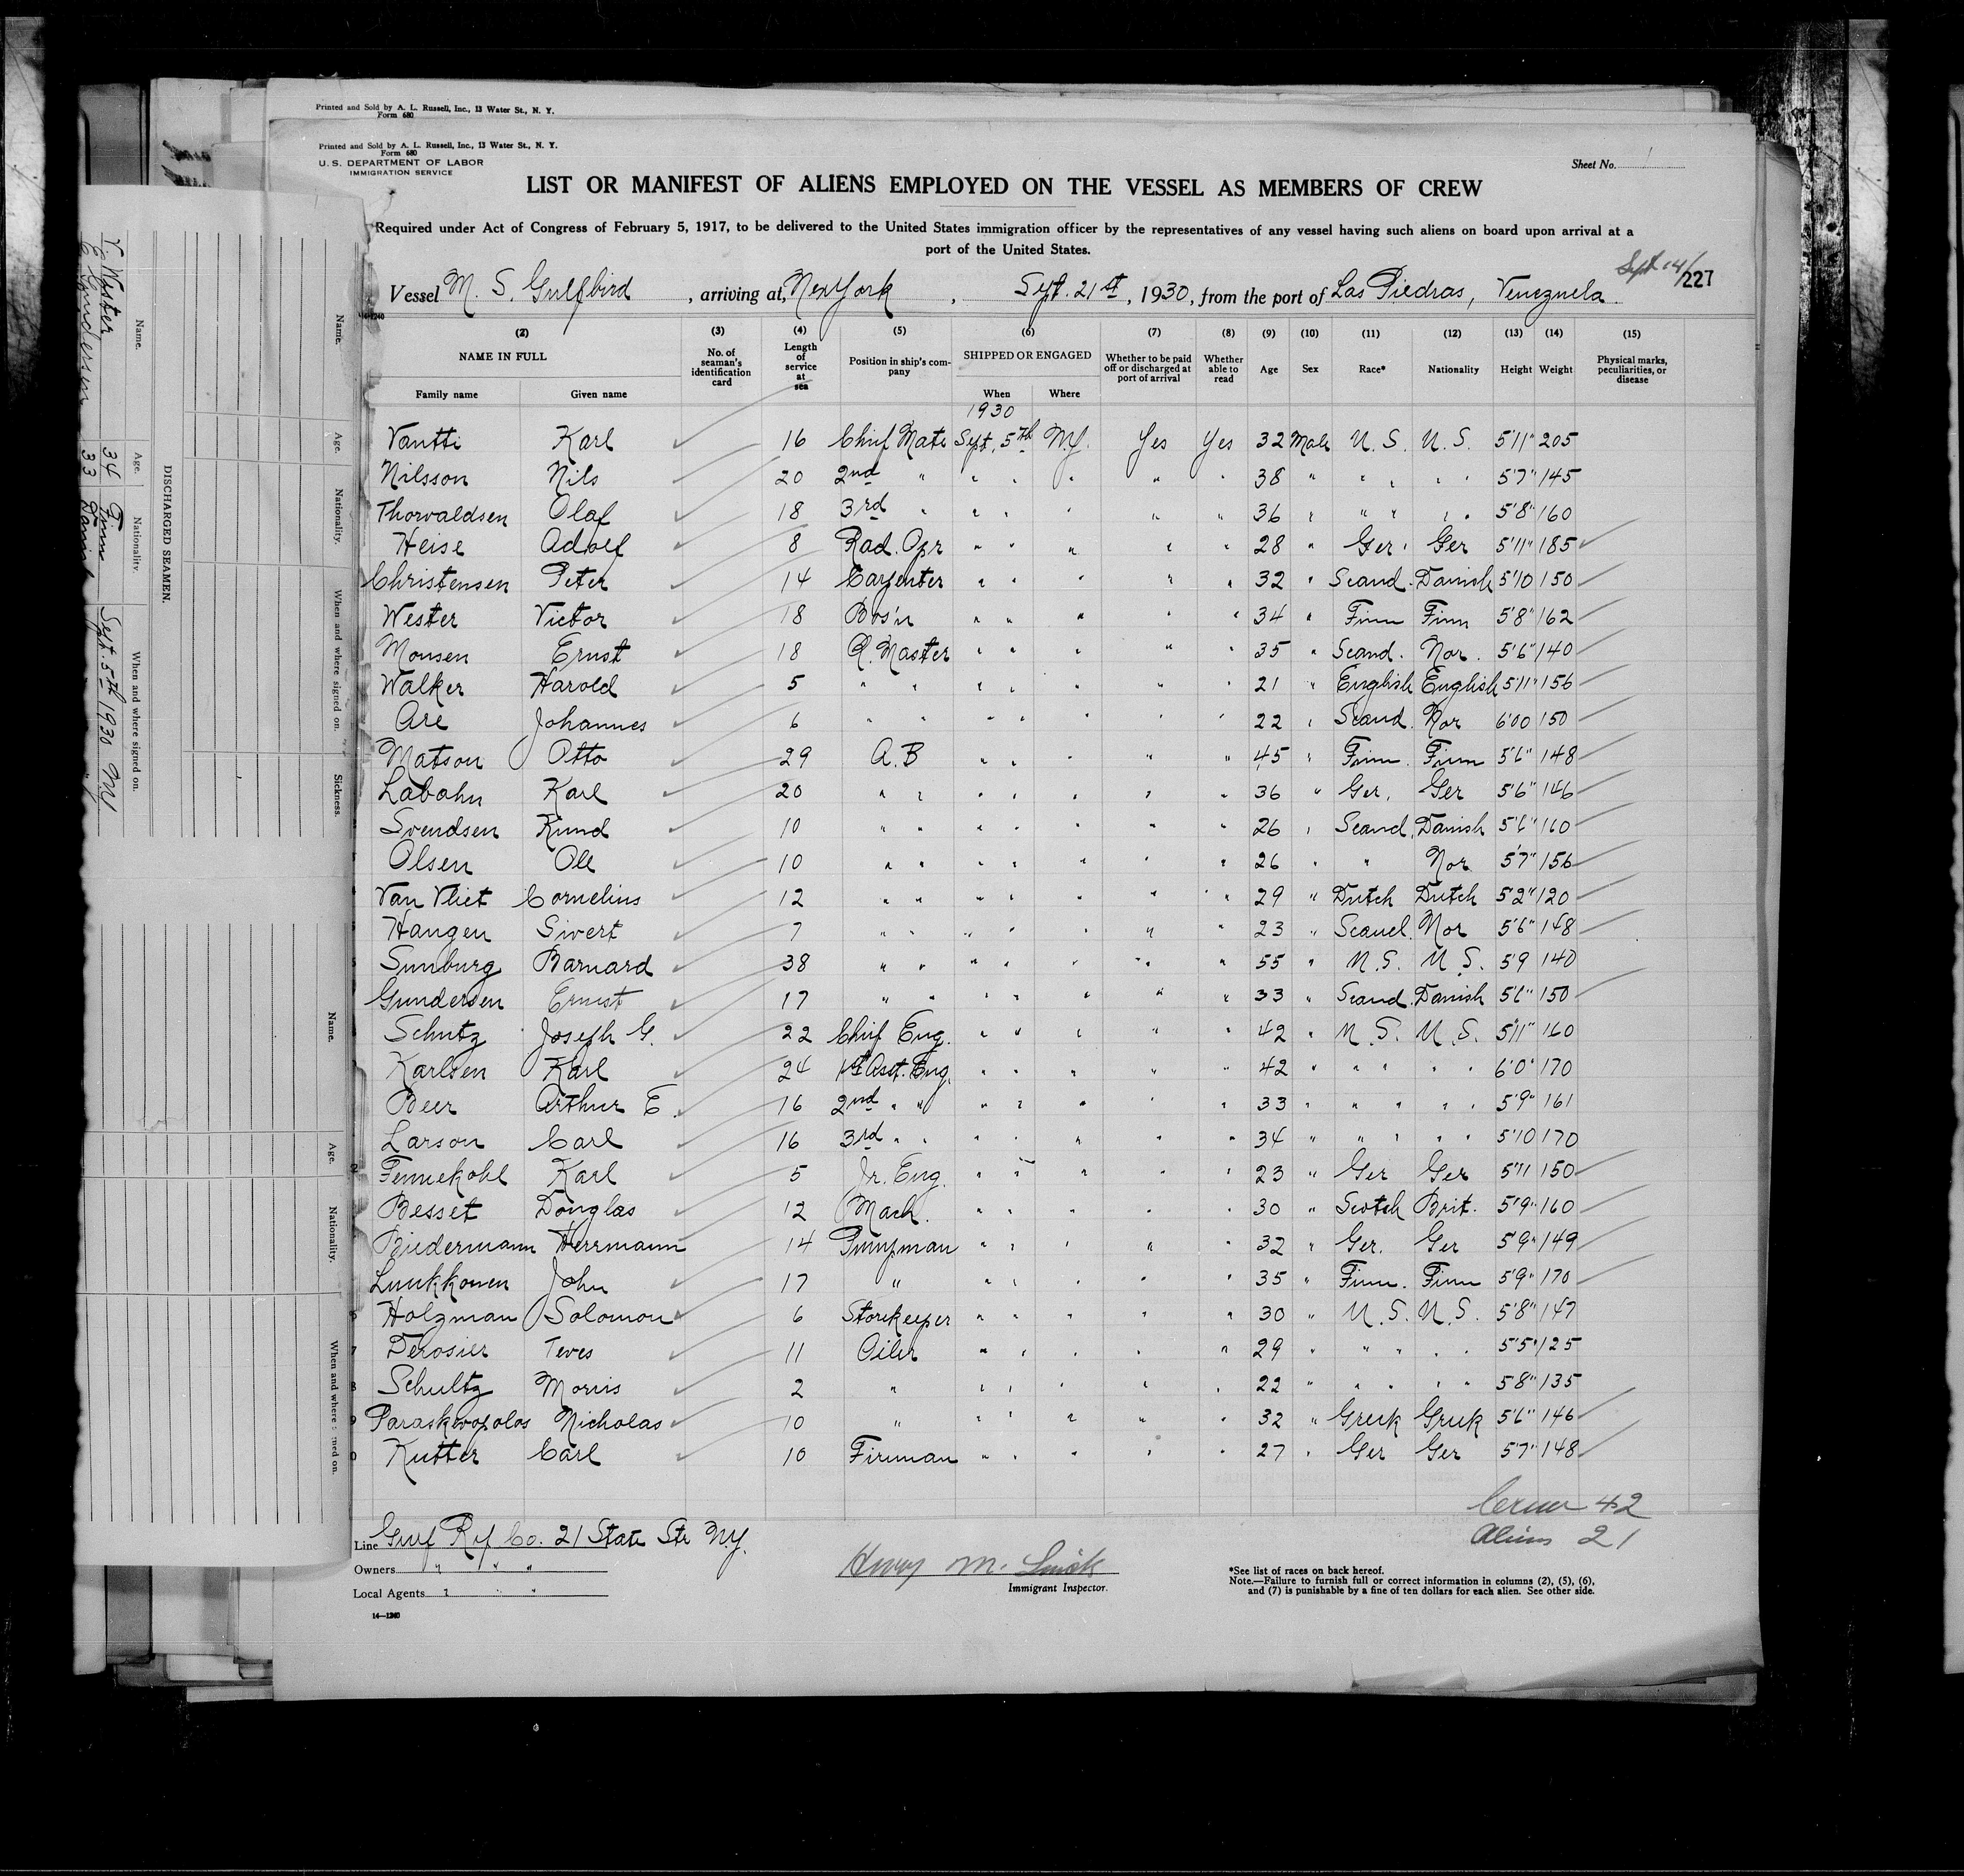 Printed and Sold by A. L. Russell, Inc., 13 Water St., N. Y.
Form 680
Printed and Sold by A. L. Russell, Inc., 13 Water St., N. Y.
Form 680
U. S. DEPARTMENT OF LABOR
IMMIGRATION SERVICE
Sheet No. 1
LIST OR MANIFEST OF ALIENS EMPLOYED ON THE VESSEL AS MEMBERS OF CREW
Required under Act of Congress of February 5, 1917, to be delivered to the United States immigration officer by the representatives of any vessel having such aliens on board upon arrival at a
port of the United States.
Sept 14/227
Vessel M. S. Gulfbird, arriving at New York, Sept. 21st, 1930, from the port of Las Piedras, Venezuela.
14-1240
(2) (3) (4) (5) (6) (7) (8) (9) (10) (11) (12) (13) (14) (15)
NAME IN FULL No. of seaman's identification card Length of service at sea Position in ship's company SHIPPED OR ENGAGED Whether to be paid off or discharged at port of arrival Whether able to read Age Sex Race* Nationality Height Weight Physical marks, peculiarities, or disease
Family name Given name When Where
1930
Vantti Karl 16 Chief Mate Sept. 5th N.Y. Yes Yes 32 Male U.S. U.S. 5'11" 205
Nilsson Nils 20 2nd " " " " " " 38 " " " " " 5'7" 145
Thorvaldsen Olaf 18 3rd " " " " " " 36 " " " " " 5'8" 160
Heise Adolf 8 Rad. Opr " " " " " 28 " Ger. Ger 5'11" 185
Christensen Peter 14 Carpenter " " " " " 32 " Scand. Danish 5'10 150
Wester Victor 18 Bos'n " " " " " 34 " Finn Finn 5'8" 162
Monsen Ernst 18 Q. Master " " " " " 35 " Scand. Nor. 5'6" 140
Walker Harold 5 " " " " " " " 21 " English English 5'11" 156
Are Johannes 6 " " " " " " " 22 " Scand. Nor 6'00 150
Matson Otto 29 A.B " " " " " 45 " Finn. Finn 5'6" 148
Labahn Karl 20 " " " " " " " 36 " Ger. Ger 5'6" 146
Svendsen Knud 10 " " " " " " " 26 " Scand. Danish 5'6" 160
Olsen Ole 10 " " " " " " " 26 " " Nor 5'7" 156
Van Vliet Cornelius 12 " " " " " " " 29 " Dutch Dutch 5'2" 120
Haugen Sivert 7 " " " " " " " 23 " Scand. Nor 5'6" 148
Sunburg Barnard 38 " " " " " " " 55 " U.S. U.S. 5'9 140
Gundersen Ernst 17 " " " " " " " 33 " Scand. Danish 5'6" 150
Schutz Joseph G. 22 Chief Eng. " " " " " 42 " U.S. U.S. 5'11" 160
Karlsen Karl 24 1st Asst. Eng. " " " " " 42 " " " " " 6'0" 170
Beer Arthur E. 16 2nd " " " " " " " 33 " " " " " 5'9" 161
Larson Carl 16 3rd " " " " " " " 34 " " " " " 5'10 170
Fennekohl Karl 5 Jr. Eng. " " " " " 23 " Ger Ger 5'11 150
Besset Douglas 12 Mach. " " " " " 30 " Scotch Brit. 5'9" 160
Biedermann Herrmann 14 Pumpman " " " " " 32 " Ger. Ger 5'9" 149
Luukkonen John 17 " " " " " " 35 " Finn. Finn 5'9" 170
Holzman Solomon 6 Storekeeper " " " " " 30 " U.S. U.S. 5'8" 147
Derosier Teves 11 Oiler " " " " " 29 " " " " " 5'5" 125
Schultz Morris 2 " " " " " " 22 " " " " " 5'8" 135
Paraskevopolos Nicholas 10 " " " " " " 32 " Greek Greek 5'6" 146
Kutter Carl 10 Fireman " " " " " 27 " Ger Ger 5'7" 148
Crew 42
Aliens 21
Line Gulf Ref Co. 21 State Str N.Y.
Owners " " "
Local Agents " "
14—1240
Henry M. Smith
Immigrant Inspector.
*See list of races on back hereof.
Note.—Failure to furnish full or correct information in columns (2), (5), (6),
and (7) is punishable by a fine of ten dollars for each alien. See other side.
DISCHARGED SEAMEN.
Name. Age. Nationality. When and where signed on.
V. Wester 34 Finn Sept. 5th 1930 NY
E Gundersen 33 Danish " "
Name. Age. Nationality. When and where signed on. Sickness.
Name. Age. Nationality. When and where signed on.